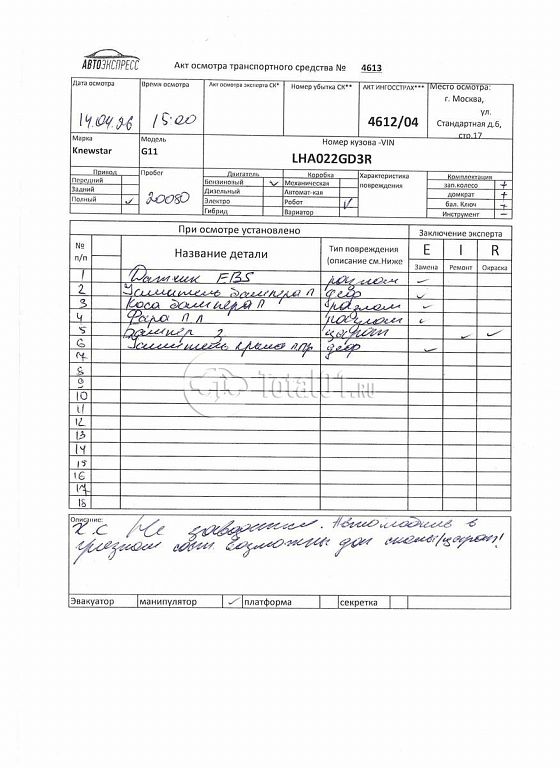 АВТОЭКСПРЕСС
Акт осмотра транспортного средства № 4613
Дата осмотра
14.04.26
Время осмотра
15:00
Акт осмотра эксперта СК*
Номер убытка СК**
АКТ ИНГОССТРАХ***
4612/04
Место осмотра:
г. Москва,
ул.
Стандартная д.6,
стр.17
Марка
Knewstar
Модель
G11
Номер кузова -VIN
LHA022GD3R
Привод
Передний
Задний
Полный ✓
Пробег
20080
Двигатель
Бензиновый ✓
Дизельный
Электро
Гибрид
Коробка
Механическая
Автомат-кая
Робот ✓
Вариатор
Характеристика
повреждения
Комплектация
зап.колесо +
домкрат +
бал. Ключ +
Инструмент –
При осмотре установлено
Заключение эксперта
№
п/п
Название детали
Тип повреждения
(описание см.Ниже
E I R
Замена Ремонт Окраска
1 Датчик EBS разлом ✓
2 Усилитель бампера П деф ✓
3 Коса бампера П разлом ✓
4 Фара П Л разлом ✓
5 Бампер З царап ✓ ✓
6 деф ✓
7
8
9
10
11
12
13
14
15
16
17
18
Total01.RU
Описание:
Не заводится. Автомобиль в
грязном сост. Возможны доп сколы/царап!
Эвакуатор манипулятор ✓ платформа секретка